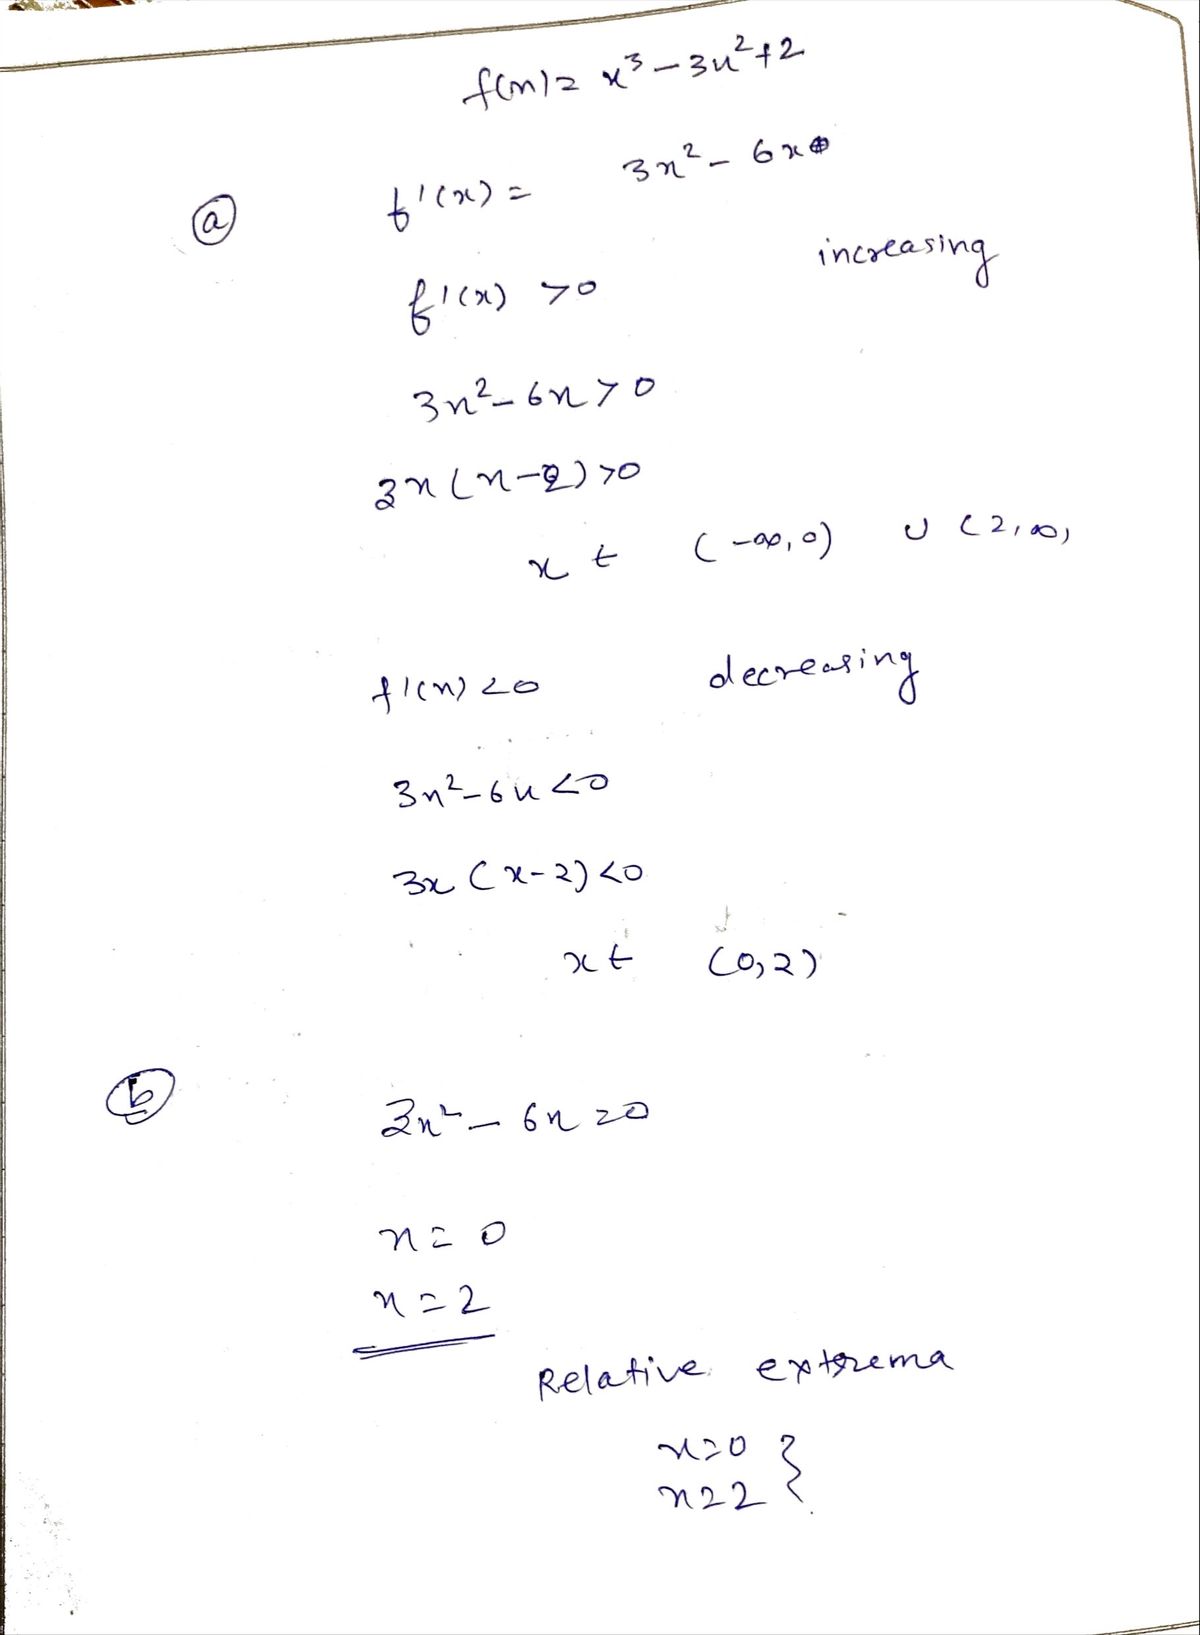 f(x) = x³ - 3x² + 2
(a) f'(x) = 3x² - 6x
f'(x) > 0 increasing
3x² - 6x > 0
3x(x-2) > 0
x ∈ (-∞, 0) ∪ (2, ∞)
f'(x) < 0 decreasing
3x² - 6x < 0
3x(x-2) < 0
x ∈ (0, 2)
(b) 3x² - 6x = 0
x = 0
x = 2
Relative extrema
x = 0 }
x = 2